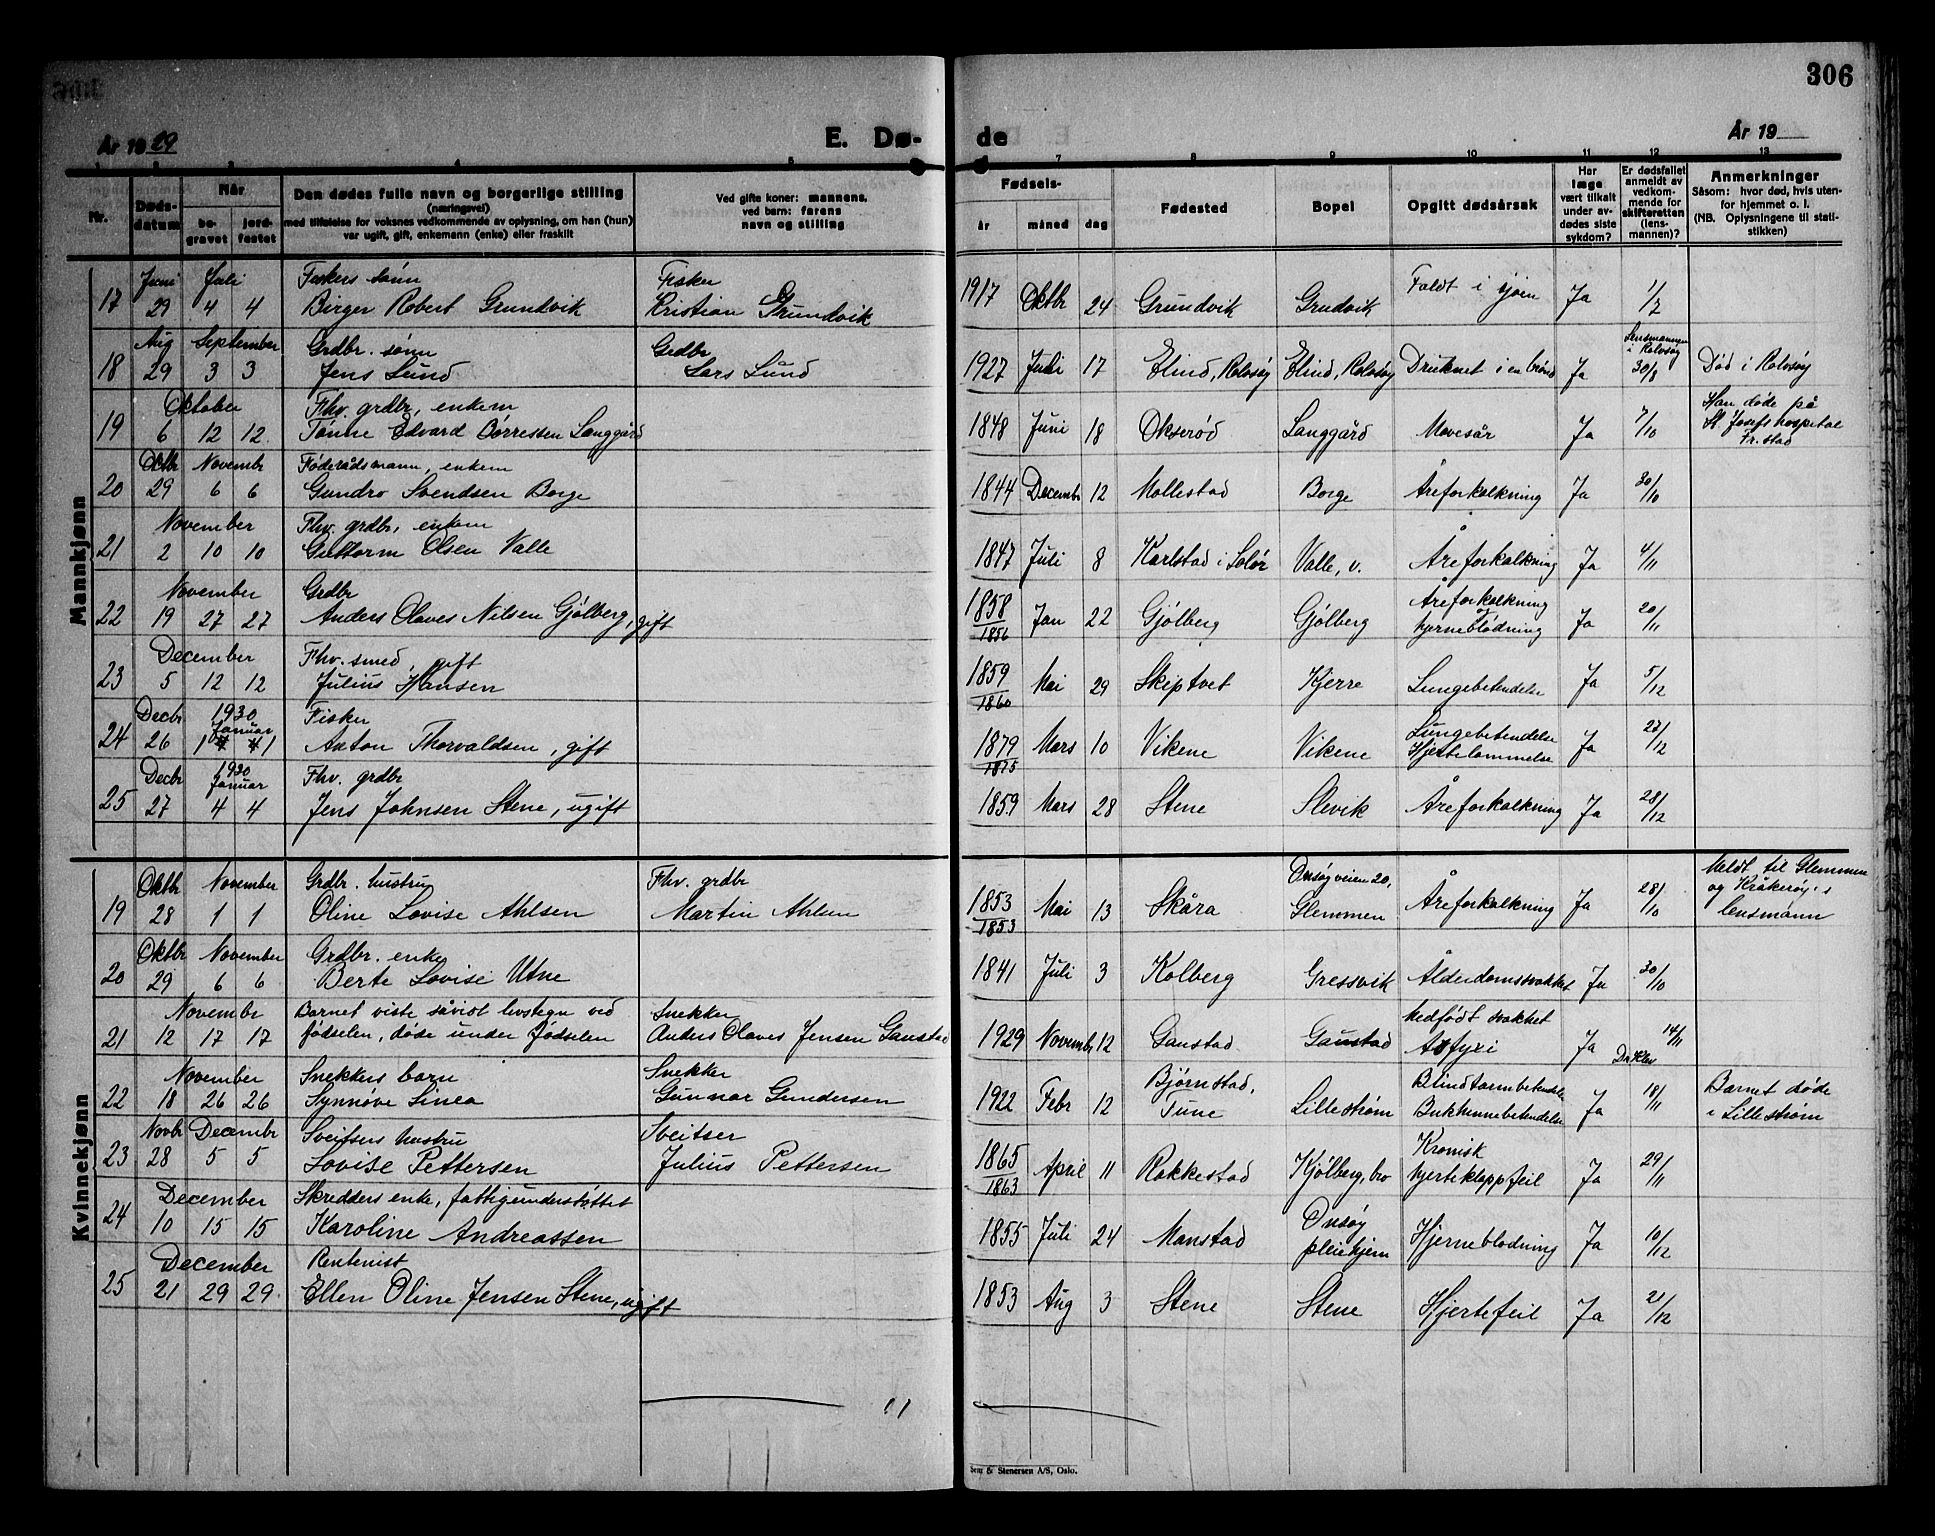 306
År 1929
E. Dø-
de
År 19
1 2 3 4 5 7 8 9 10 11 12 13
Nr.
Døds-
datum
Når
be-
gravet
jord-
festet
Den dødes fulle navn og borgerlige stilling
(næringsvei)
med tilføielse for voksnes vedkommende av oplysning, om han (hun)
var ugift, gift, enkemann (enke) eller fraskilt
Ved gifte koner: mannens,
ved barn: farens
navn og stilling
Fødsels-
år
måned
dag
Fødested
Bopel
Opgitt dødsårsak
Har
læge
vært tilkalt
under av-
dødes siste
sykdom?
Er dødsfallet
anmeldt av
vedkom-
mende for
skifteretten
(lens-
mannen)?
Anmerkninger
Såsom: hvor død, hvis uten-
for hjemmet o. l.
(NB. Oplysningene til stati-
stikken)
Mannkjønn
Juni Juli Fiskers sønn Fisker
17 29 4 4 Birger Robert Grundvik Kristian Grundvik 1917 Oktbr 24 Grundvik Grudvik Faldt i sjøen Ja 1/7
Aug September Grdbr. sønn Grdbr Lensmannen
i Rolvsøy
18 29 3 3 Jens Lund Lars Lund 1927 Juli 17 Elind, Rolvsøy Elind, Rolvsøy Druknet i en brønd Ja 30/8 Død i Rolvsøy
Oktober Fhv. grdbr, enkem Han døde på
19 6 12 12 Tønne Edvard Børressen Langgård 1848 Juni 18 Okserød Langgård Mavesår Ja 7/10 St. Josefs hospital
Fr.stad
Oktbr November Føderådsmann, enkem
20 29 6 6 Gundro Svendsen Borge 1844 Decembr 12 Mollestad Borge Åreforkalkning Ja 30/10
November Fhv. grdbr, enkem
21 2 10 10 Guttorm Olsen Valle 1847 Juli 8 Karlstad i Solør Valle, v. Åreforkalkning Ja 4/11
November Grdbr 1858 Åreforkalkning
22 19 27 27 Anders Olaves Nilsen Gjølberg, gift 1856 Jan 22 Gjølberg Gjølberg hjerneblødning Ja 20/11
December Fhv. smed, gift 1859
23 5 12 12 Julius Hansen 1860 Mai 29 Skiptvet Kjerre Lungebetendelse Ja 5/12
Decbr 1930 Januar Fisker 1879 Lungebetendelse
24 26 1 1 Anton Thorvaldsen, gift 1875 Mars 10 Vikene Vikene Hjertelammelse Ja 27/12
Decbr 1930 Januar Fhv. grdbr
25 27 4 4 Jens Johnsen Stene, ugift 1859 Mars 28 Stene Slevik Åreforkalkning Ja 28/12
Kvinnekjønn
Oktbr November Grdbr. hustru Fhv. grdbr 1853 Onsøyveien 20, Meldt til Glemmen
og Kråkerøy's
19 28 1 1 Oline Lovise Ahlsen Martin Ahlsen 1853 Mai 13 Skåra Glemmen Åreforkalkning Ja 28/10 lensmann
Oktbr November Grdbr. enke
20 29 6 6 Berte Lovise Utne 1841 Juli 3 Kolberg Gressvik Alderdomssvakhet Ja 30/10
November Barnet viste såvidt livstegn ved Snekker Medfødt svakhet
21 12 17 17 fødselen, døde under fødselen Anders Olaves Jensen Gaustad 1929 Novembr 12 Gaustad Gaustad Asfyxi Ja 14/11
November Snekkers barn Snekker Bjørnstad, Blindtarmbetendelse Barnet døde
22 18 26 26 Synnøve Linea Gunnar Gundersen 1922 Febr 12 Tune Lillestrøm Bukhinnebetendelse Ja 18/11 i Lillestrøm
Novbr Decembr Sveitsers hustru Sveitser 1865 Kronisk
23 28 5 5 Lovise Pettersen Julius Pettersen 1863 April 11 Rakkestad Kjølberg, bro hjerteklappfeil Ja 29/11
December Skredders enke, fattigunderstøttet Onsøy
24 10 15 15 Karoline Andreassen 1855 Juli 24 Manstad pleiehjem Hjerneblødning Ja 10/12
December Rentenist
25 21 29 29 Ellen Oline Jensen Stene, ugift 1853 Aug 3 Stene Stene Hjertefeil Ja 21/12
Sem & Stenersen A/S, Oslo.